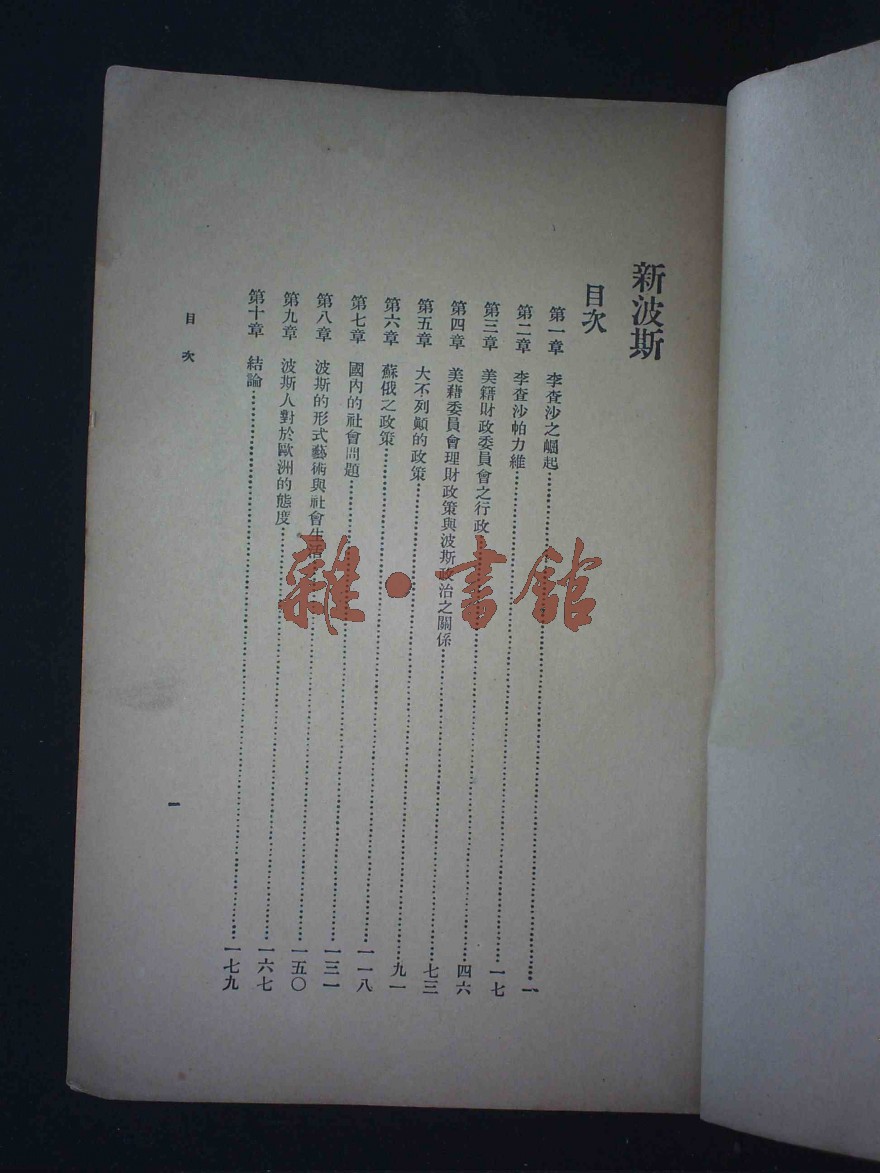 新波斯
目次
第一章 李查沙之崛起……一
第二章 李查沙帕力維……一七
第三章 美籍財政委員會之行政……四六
第四章 美藉委員會理財政策與波斯政治之關係……七三
第五章 大不列顚的政策……九一
第六章 蘇俄之政策……一一八
第七章 國內的社會問題……一三一
第八章 波斯的形式藝術與社會生活……一五〇
第九章 波斯人對於歐洲的態度……一六七
第十章 結論……一七九
目次
一
雜·書館